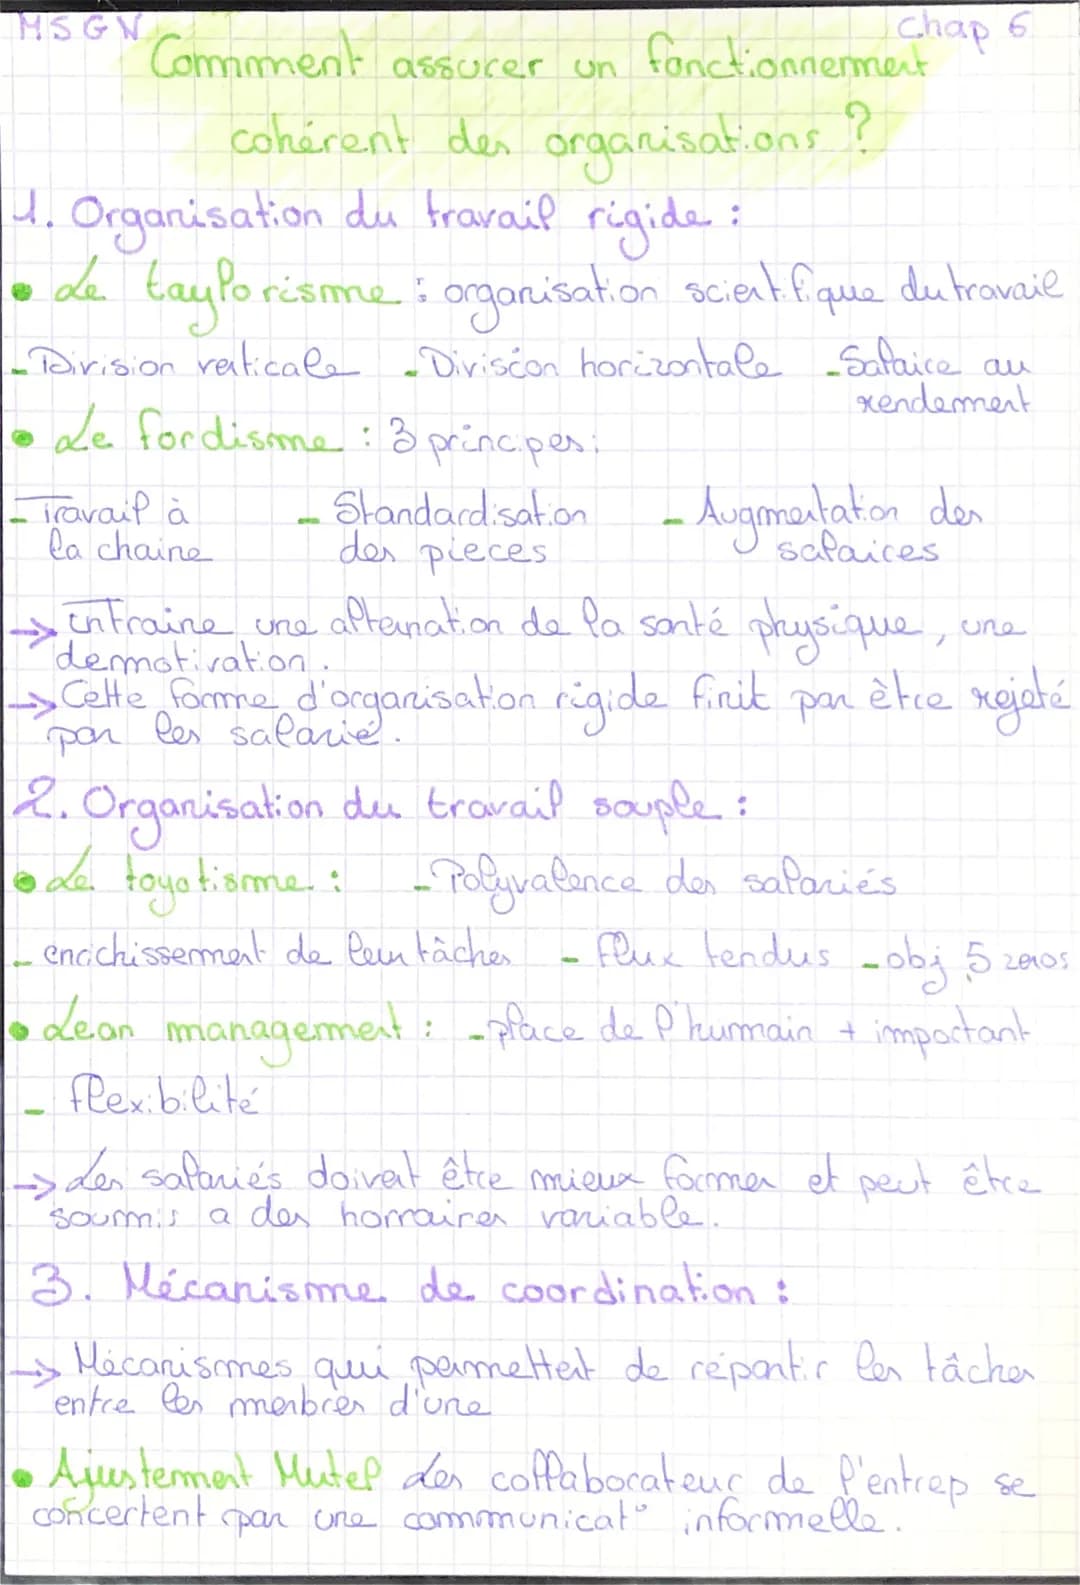 MSGN Chap 6
Comment assurer un fonctionnement
cohérent des organisations ?
1. Organisation du travail rigide :
• Le taylorisme : organisation scientifique du travail
- Division verticale - Division horizontale - Salaire au
rendement
• Le fordisme : 3 principes :
- Travail à - Standardisation - Augmentation des
la chaine des pieces salaires
→ Entraine une alternation de la santé physique, une
demotivation.
→ Cette forme d'organisation rigide finit par être rejeté
par les salarié.
2. Organisation du travail souple :
• Le toyotisme : - Polyvalence des salariés
- enrichissement de leur tâches - flux tendus - obj 5 zeros
• Lean management : - place de l'humain + important
- flexibilité
→ Les salariés doivent être mieux former et peut être
soumis a des horraires variable.
3. Mécanisme de coordination :
→ Mécanismes qui permettent de répartir les tâches
entre les menbres d'une
• Ajustement Mutel Les collaborateur de l'entrep se
concertent par une communicat° informelle.